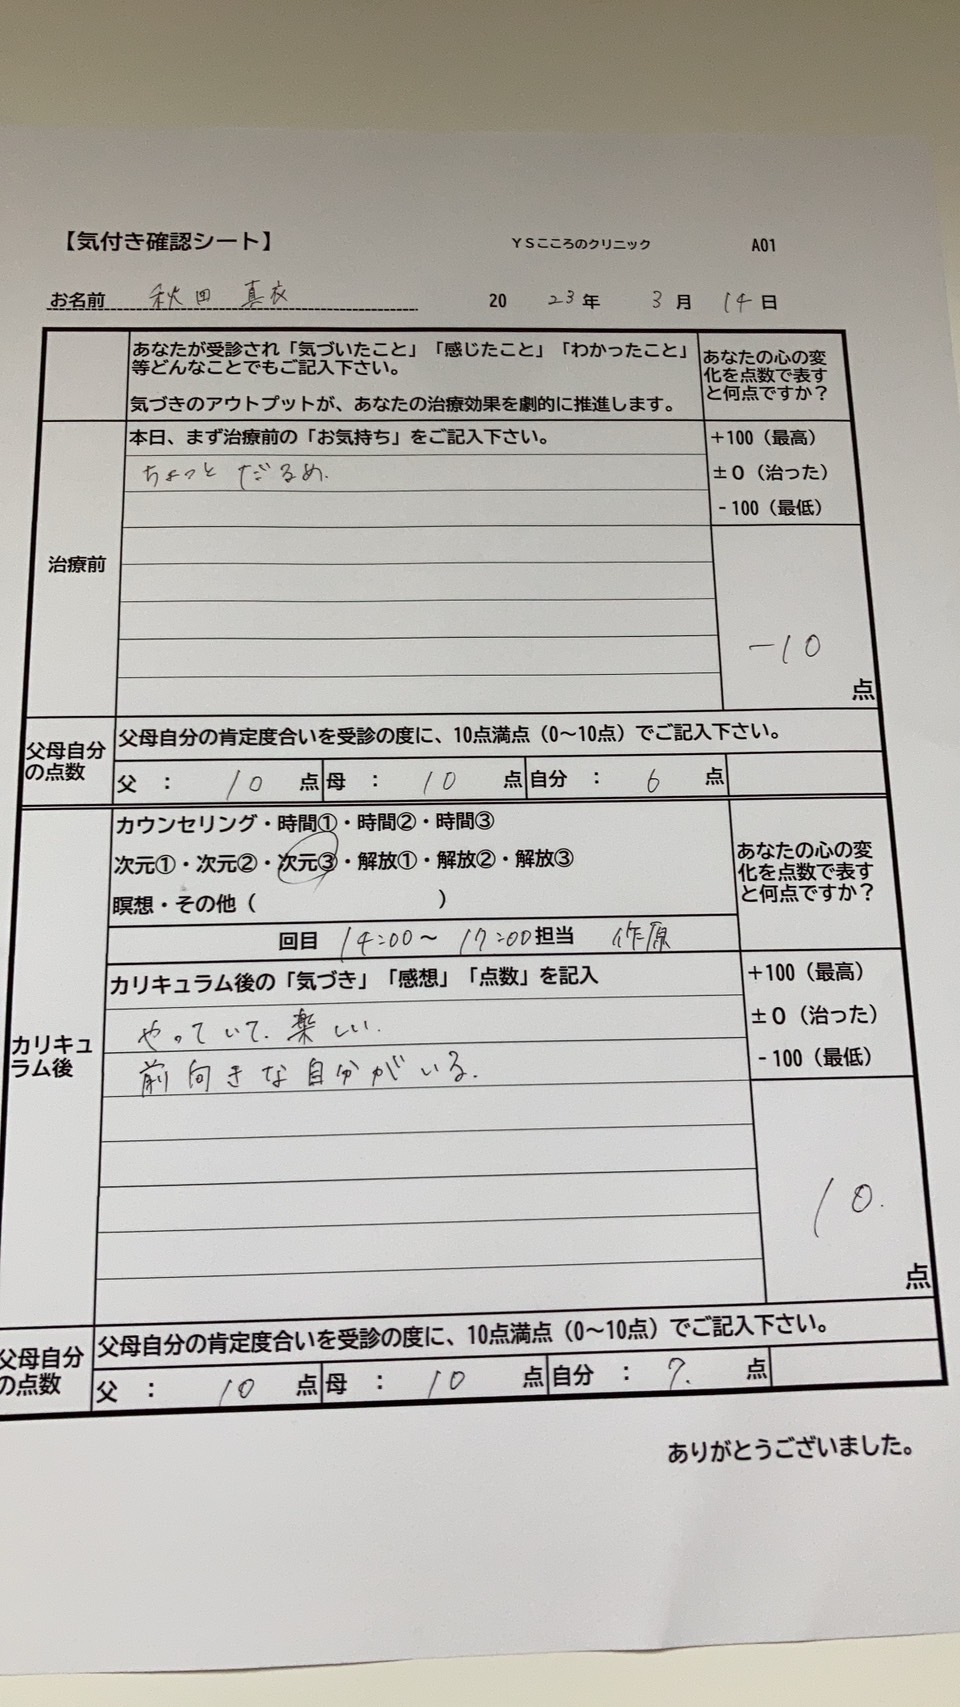 【気付き確認シート】 YSこころのクリニック A01
お名前 秋田 真衣 20 23年 3月 14日
あなたが受診され「気づいたこと」「感じたこと」「わかったこと」
等どんなことでもご記入下さい。
気づきのアウトプットが、あなたの治療効果を劇的に推進します。
あなたの心の変
化を点数で表す
と何点ですか？
治療前
本日、まず治療前の「お気持ち」をご記入下さい。
ちょっと だるめ.
+100（最高）
±0（治った）
-100（最低）
-10
点
父母自分
の点数
父母自分の肯定度合いを受診の度に、10点満点（0～10点）でご記入下さい。
父 ： 10 点 母 ： 10 点 自分 ： 6 点
カウンセリング・時間①・時間②・時間③
次元①・次元②・次元③・解放①・解放②・解放③
瞑想・その他（ ）
回目 14:00～ 17:00 担当 作原
あなたの心の変
化を点数で表す
と何点ですか？
カリキュ
ラム後
カリキュラム後の「気づき」「感想」「点数」を記入
やっていて. 楽しい.
前向きな自分がいる.
+100（最高）
±0（治った）
-100（最低）
10.
点
父母自分
の点数
父母自分の肯定度合いを受診の度に、10点満点（0～10点）でご記入下さい。
父 ： 10 点 母 ： 10 点 自分 ： 7. 点
ありがとうございました。